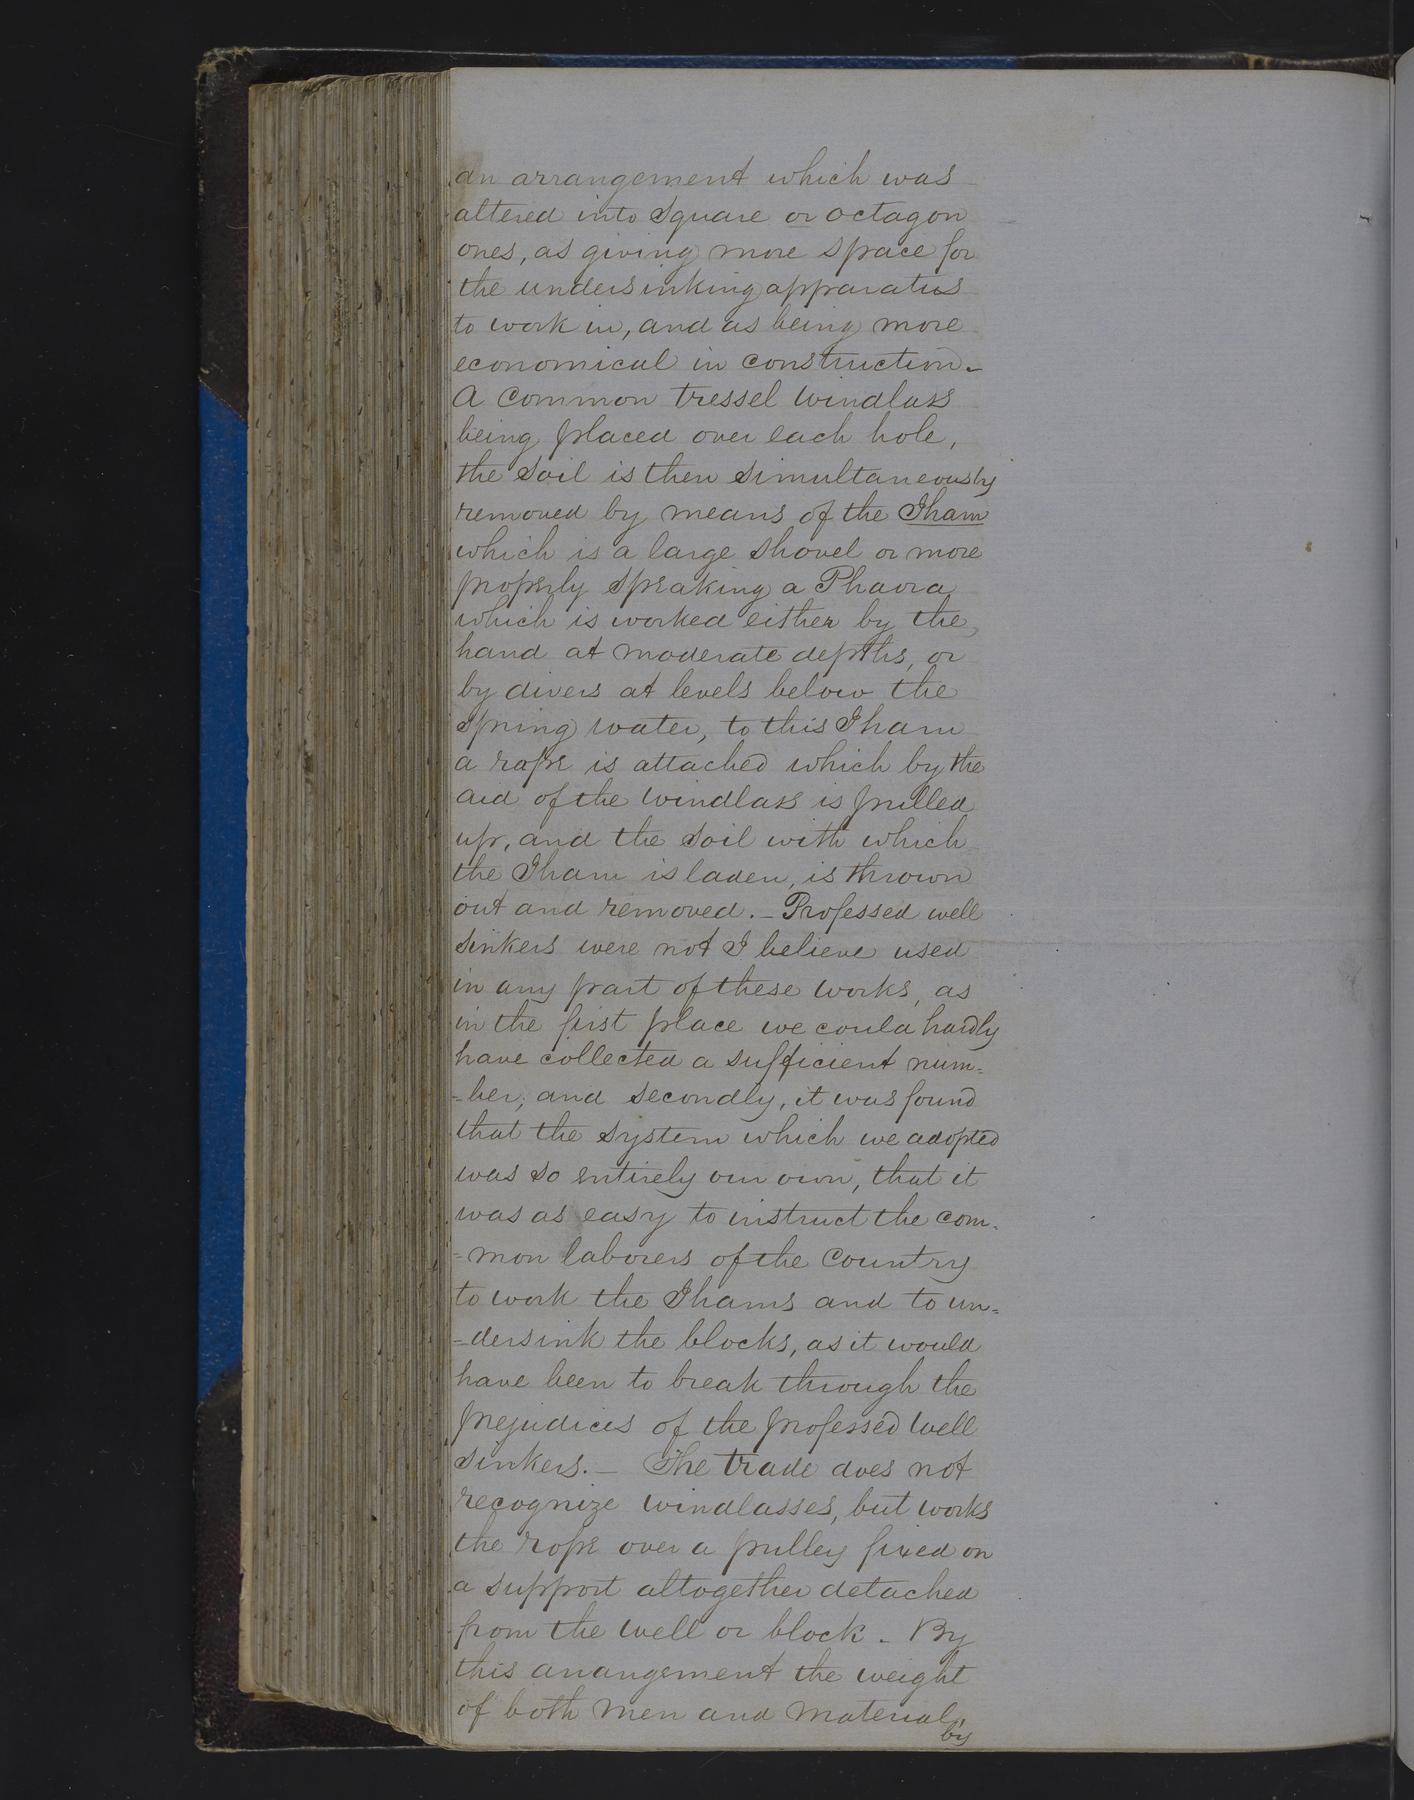 an arrangement which was
altered into square or octagon
ones, as giving more space for
the undersinking apparatus
to work in, and as being more
economical in construction.-
A common tressel windlass
being placed over each hole,
the soil is then simultaneously
removed by means of the Jham
which is a large shovel or more
properly speaking a Phaora
which is worked either by the
hand at moderate depths, or
by divers at levels below the
spring water, to this Jham
a rope is attached which by the
aid of the windlass is pulled
up, and the soil with which
the Jham is laden, is thrown
out and removed. - Professed well
sinkers were not I believe used
in any part of these works, as
in the first place we could hardly
have collected a sufficient num=
=ber; and secondly, it was found
that the system which we adopted
was so entirely our own, that it
was as easy to instruct the com=
=mon laborers of the country
to work the Jhams and to un=
=dersink the blocks, as it would
have been to break through the
prejudices of the professed well
sinkers. - The trade does not
recognize windlasses, but works
the rope over a pulley fixed on
a support altogether detached
from the well or block - By
this arrangement the weight
of both men and material,
by